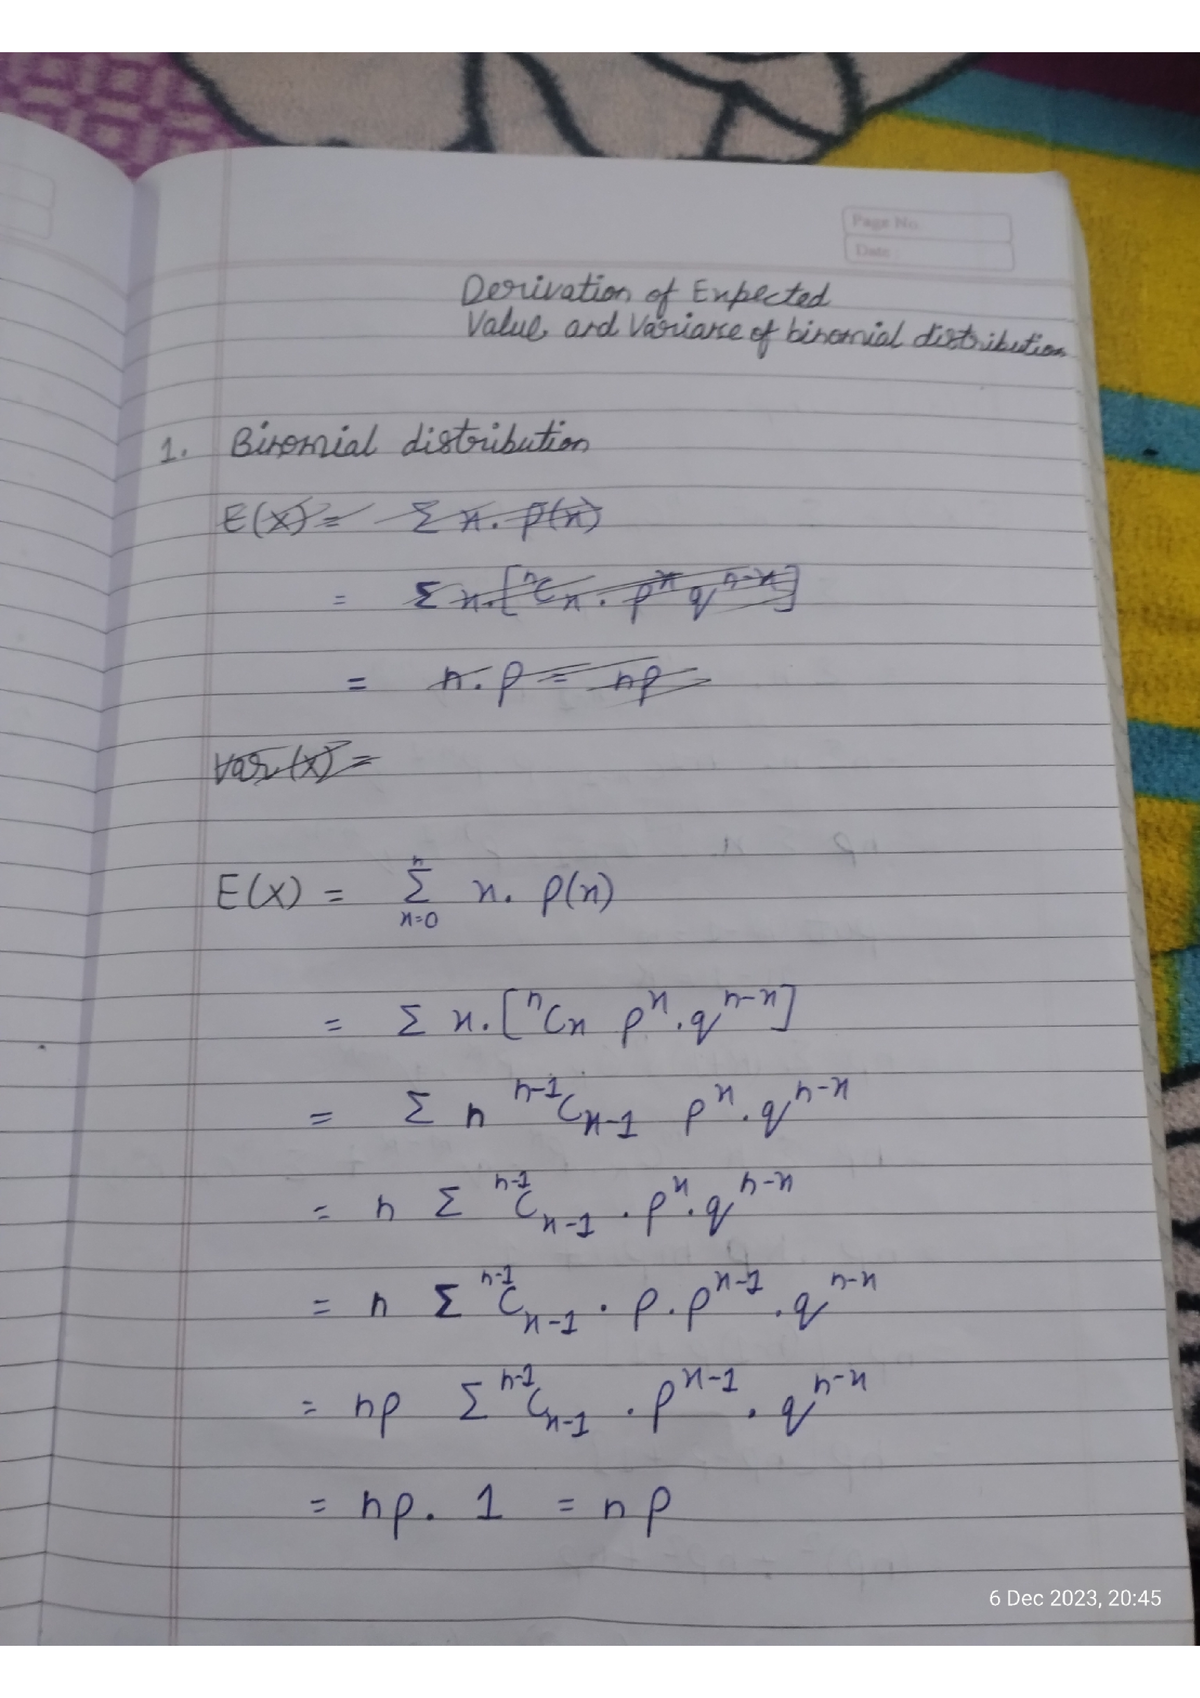 Page No.
Date :
Derivation of Expected
Value, and Variance of binomial distribution
1. Binomial distribution
E(X) = Σ x. p(x)
= Σ x.[ⁿCₓ . pˣ qⁿ⁻ˣ]
= n. p = np
Var(X) =
E(X) = Σₓ₌₀ⁿ x. p(x)
= Σ x.[ⁿCₓ pˣ.qⁿ⁻ˣ]
= Σ n ⁿ⁻¹Cₓ₋₁ pˣ.qⁿ⁻ˣ
= n Σ ⁿ⁻¹Cₓ₋₁ . pˣ.qⁿ⁻ˣ
= n Σ ⁿ⁻¹Cₓ₋₁ . p.pˣ⁻¹.qⁿ⁻ˣ
= np Σ ⁿ⁻¹Cₓ₋₁ . pˣ⁻¹ . qⁿ⁻ˣ
= np. 1 = np
6 Dec 2023, 20:45